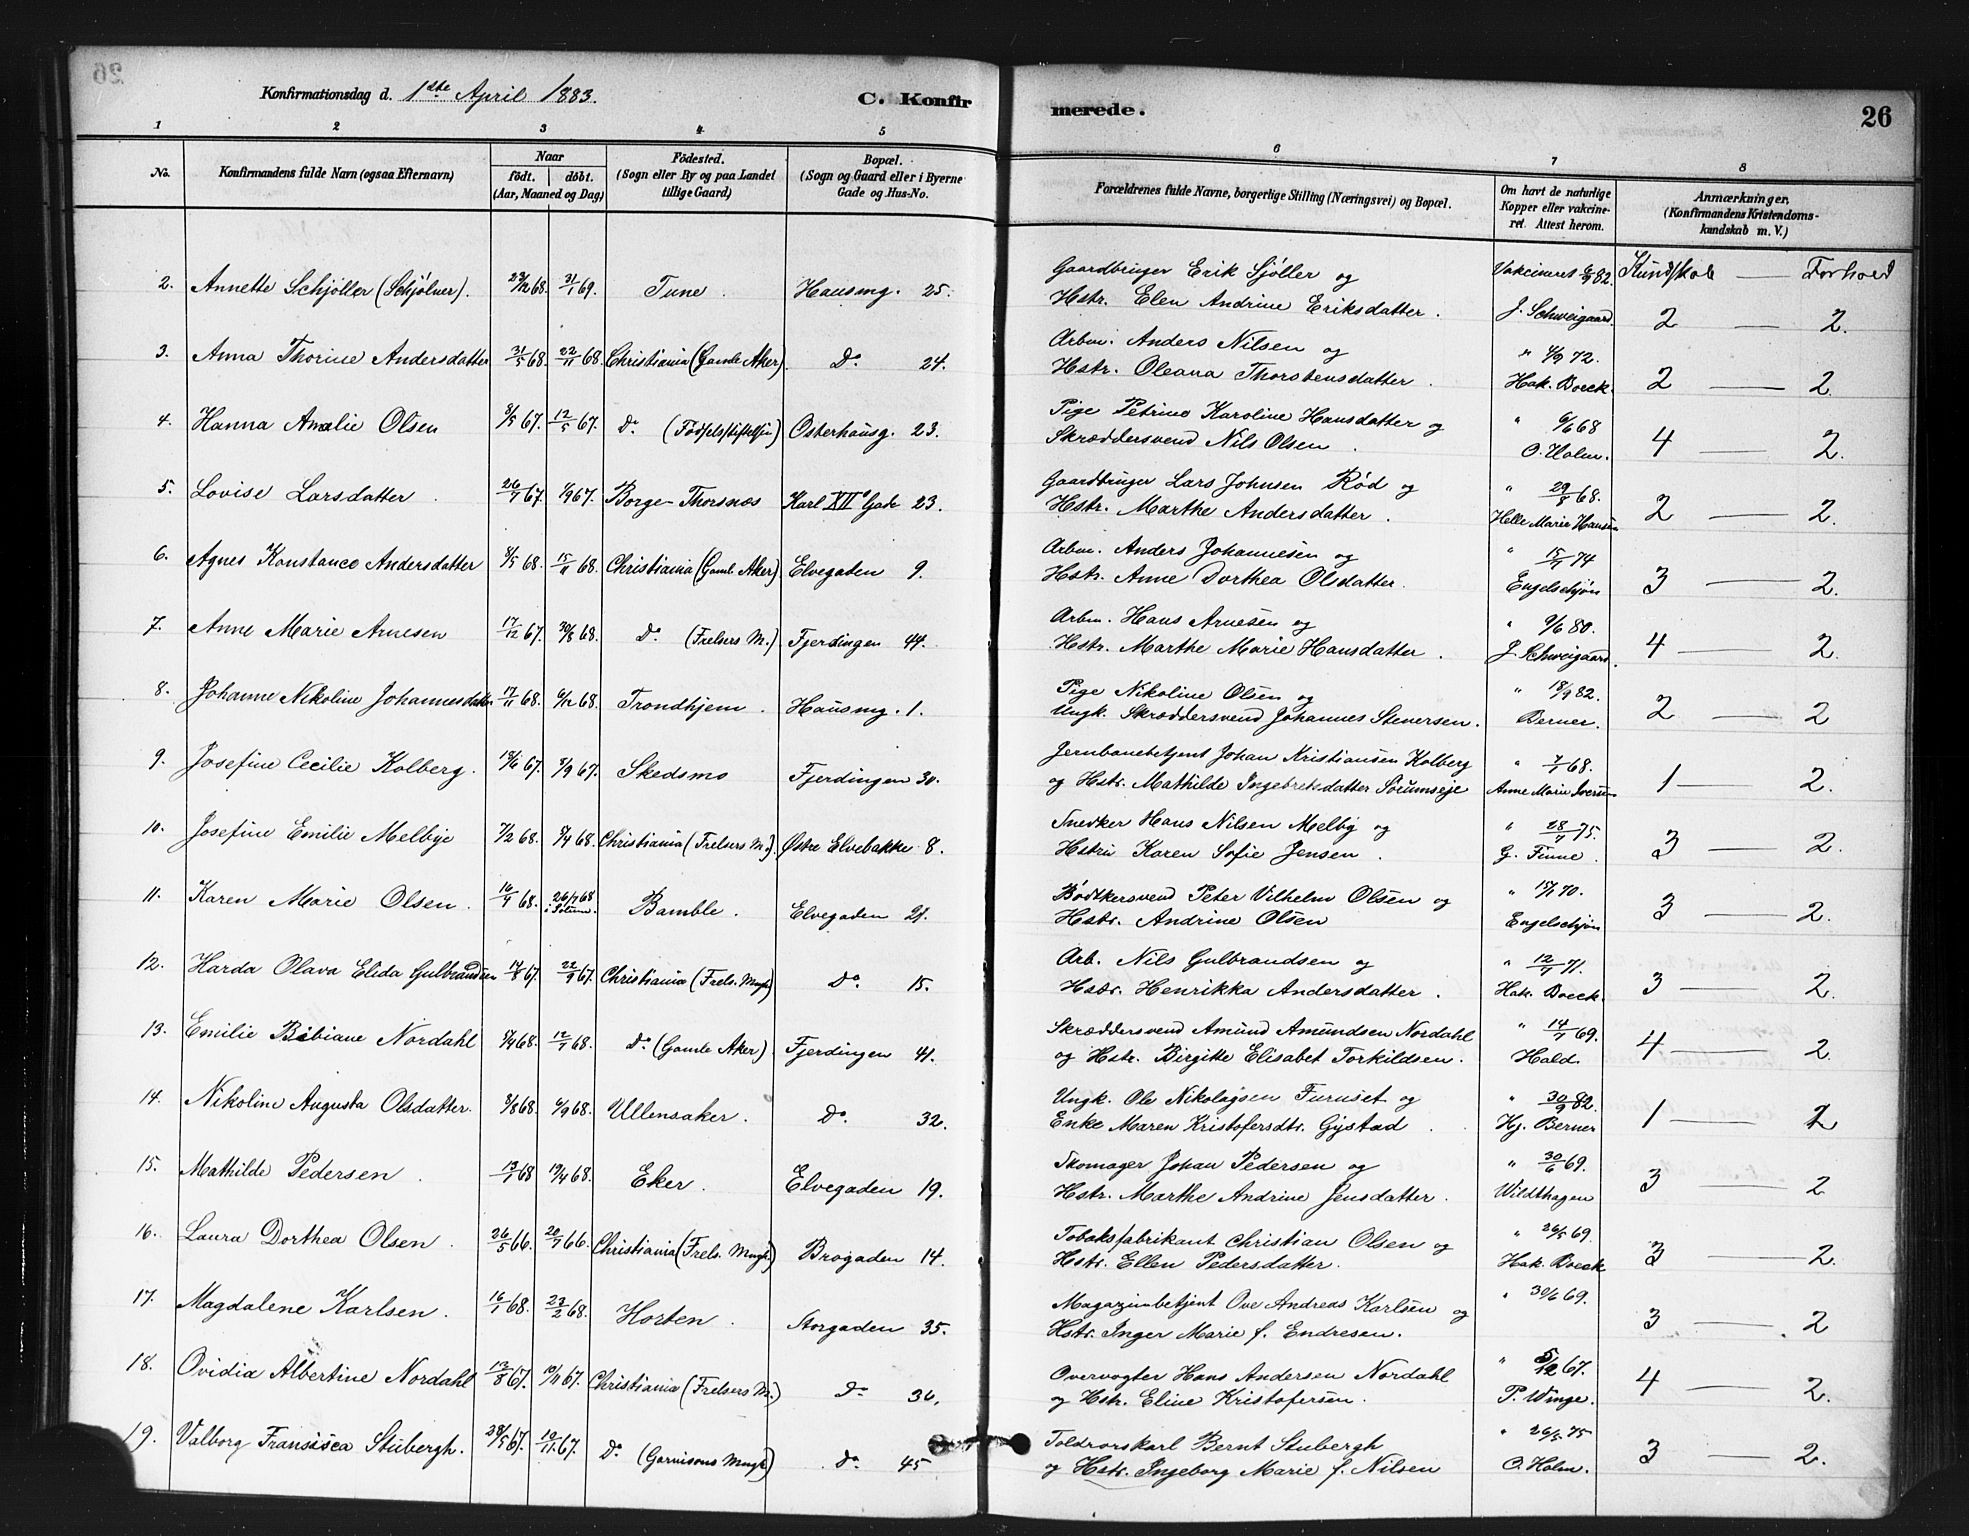 Konfirmationsdag d. 1ste April 1883. C. Konfirmerede. 26
1 2 3 4 5 6 7 8
No.
Konfirmandens fulde Navn (ogsaa Efternavn)
Naar
födt. döbt.
(Aar, Maaned og Dag)
Födested.
(Sogn eller By og paa Landet
tillige Gaard)
Bopæl.
(Sogn og Gaard eller i Byerne
Gade og Hus-No.
Forældrenes fulde Navne, borgerlige Stilling (Næringsvei) og Bopæl.
Om havt de naturlige
Kopper eller vakcine-
ret. Attest herom.
Anmærkninger,
(Konfirmandens Kristendoms-
kundskab m. V.)
2. Annette Schjöller (Schjølner). 23/12 68. 31/1 69. Tune. Hausmg. 25. Gaardbruger Erik Sjöller og Vakcineret 82. Kundskab — Forhold
Hstr. Elen Andrine Eriksdatter. J. Schweigaard. 2 — 2.
3. Anna Thorine Andersdatter 31/5 68. 22/11 68. Christiania (Gamle Aker). Do 24. Arbm. Anders Nilsen og " 4/9 72.
Hstr. Oleana Thorstensdatter. Hak. Boeck. 2 — 2
4. Hanna Amalie Olsen 8/5 67. 12/5 67. Do (Fødselsstiftelsen) Osterhausg. 23. Pige Petrine Karoline Hansdatter og " 6/6 68
Skræddersvend Nils Olsen. O. Holm. 4 — 2.
5. Lovise Larsdatter. 26/7 67. 1/9 67. Borge - Thorsnæs Karl XIIs Gade 23. Gaardbruger Lars Johnsen Rød og " 29/8 68.
Hstr. Marthe Andersdatter. Helle Marie Hansen 2 — 2.
6. Agnes Konstance Andersdatter 8/5 68. 15/11 68. Christiania (Gamle Aker). Elvegaden 9. Arbm. Anders Johannesen og " 15/7 74
Hstr. Anne Dorthea Olsdatter. Engelschjøn 3 — 2.
7. Anne Marie Arnesen 17/12 67. 30/8 68. Do (Frelsers M.) Fjerdingen 44. Arbm. Hans Arnesen og " 9/6 80.
Hstr. Marthe Marie Hansdatter. J. Schweigaard. 4 — 2.
8. Johanne Nikoline Johannesdatter 17/11 68. 6/12 68. Trondhjem. Hausmg. 1. Pige Nikoline Olsen og " 18/9 82.
Ungk. Skræddersvend Johannes Stenersen. Berner. 2 — 2
9. Josefine Cecilie Kolberg. 18/6 67. 8/9 67. Skedsmo Fjerdingen 30. Jernbanebetjent Johan Kristiansen Kolberg " 7/7 68.
og Hstr. Mathilde Ingebretsdatter Sörumseje Anne Marie Iversen 1 — 2.
10. Josefine Emilie Melbye 7/2 68. 8/4 68. Christiania (Frelsers M.). Østre Elvebakke 8. Snedker Hans Nilsen Melby og " 28/7 75.
Hstru Karen Sofie Jensen. G. Finne. 3 — 2.
11. Karen Marie Olsen. 16/4 68. 26/7 68 i Solum. Bamble. Elvegaden 21. Bødkersvend Peter Vilhelm Olsen og " 15/7 70.
Hstr. Andrine Olsen Engelschjøn 3 — 2.
12. Harda Olava Elida Gulbrandsen 14/8 67. 22/9 67. Christiania (Frels. Mngh) Do 15. Arb. Nils Gulbrandsen og " 12/7 71.
Hstr. Henrikka Andersdatter. Hak. Boeck. 3 — 2.
13. Emilie Bibiane Nordahl 5/4 68. 12/7 68. Do (Gamle Aker) Fjerdingen 41. Skræddersvend Amund Amundsen Nordahl " 14/7 69.
og Hstr. Birgitte Elisabet Torkildsen. Hald. 4 — 2.
14. Nikoline Augusta Olsdatter. 3/8 68. 6/9 68. Ullensaker. Do 32. Ungk. Ole Nikolaysen Furuset og " 30/9 82.
Enke Maren Kristofersdtr. Gystad. Hj. Berner 1 — 2
15. Mathilde Pedersen. 13/1 68 19/4 68. Eker. Elvegaden 19. Skomager Johan Pedersen og " 30/6 69.
Hstr. Marthe Andrine Jensdatter. Wildthagen 3 — 2
16. Laura Dorthea Olsen. 26/5 66. 20/7 66. Christiania (Frels. Mngh) Brogaden 14. Tobaksfabrikant Christian Olsen og " 26/5 69.
Hstr. Ellen Pedersdatter. Hak. Boeck 3 — 2.
17. Magdalene Karlsen. 16/1 68. 23/2 68. Horten. Storgaden 35. Magazinbetjent Ove Andreas Karlsen og " 30/6 69.
Hstr. Inger Marie f. Endresen. 3 — 2
18. Ovidia Albertine Nordahl 12/8 67. 10/11 67. Christiania (Frelsers M.) Do 36. Overvogter Hans Andersen Nordahl " 5/12 67.
og Hstr. Eline Kristofersen. P. Winge. 4 — 2.
19. Valborg Fransisca Stubergh. 67. 10/11 67. Do (Garnisons Mngh) Do 45 Toldrorskarl Bernt Stubergh " 26/5 75
og Hstr. Ingeborg Marie f. Nilsen O. Holm. 3 — 2.